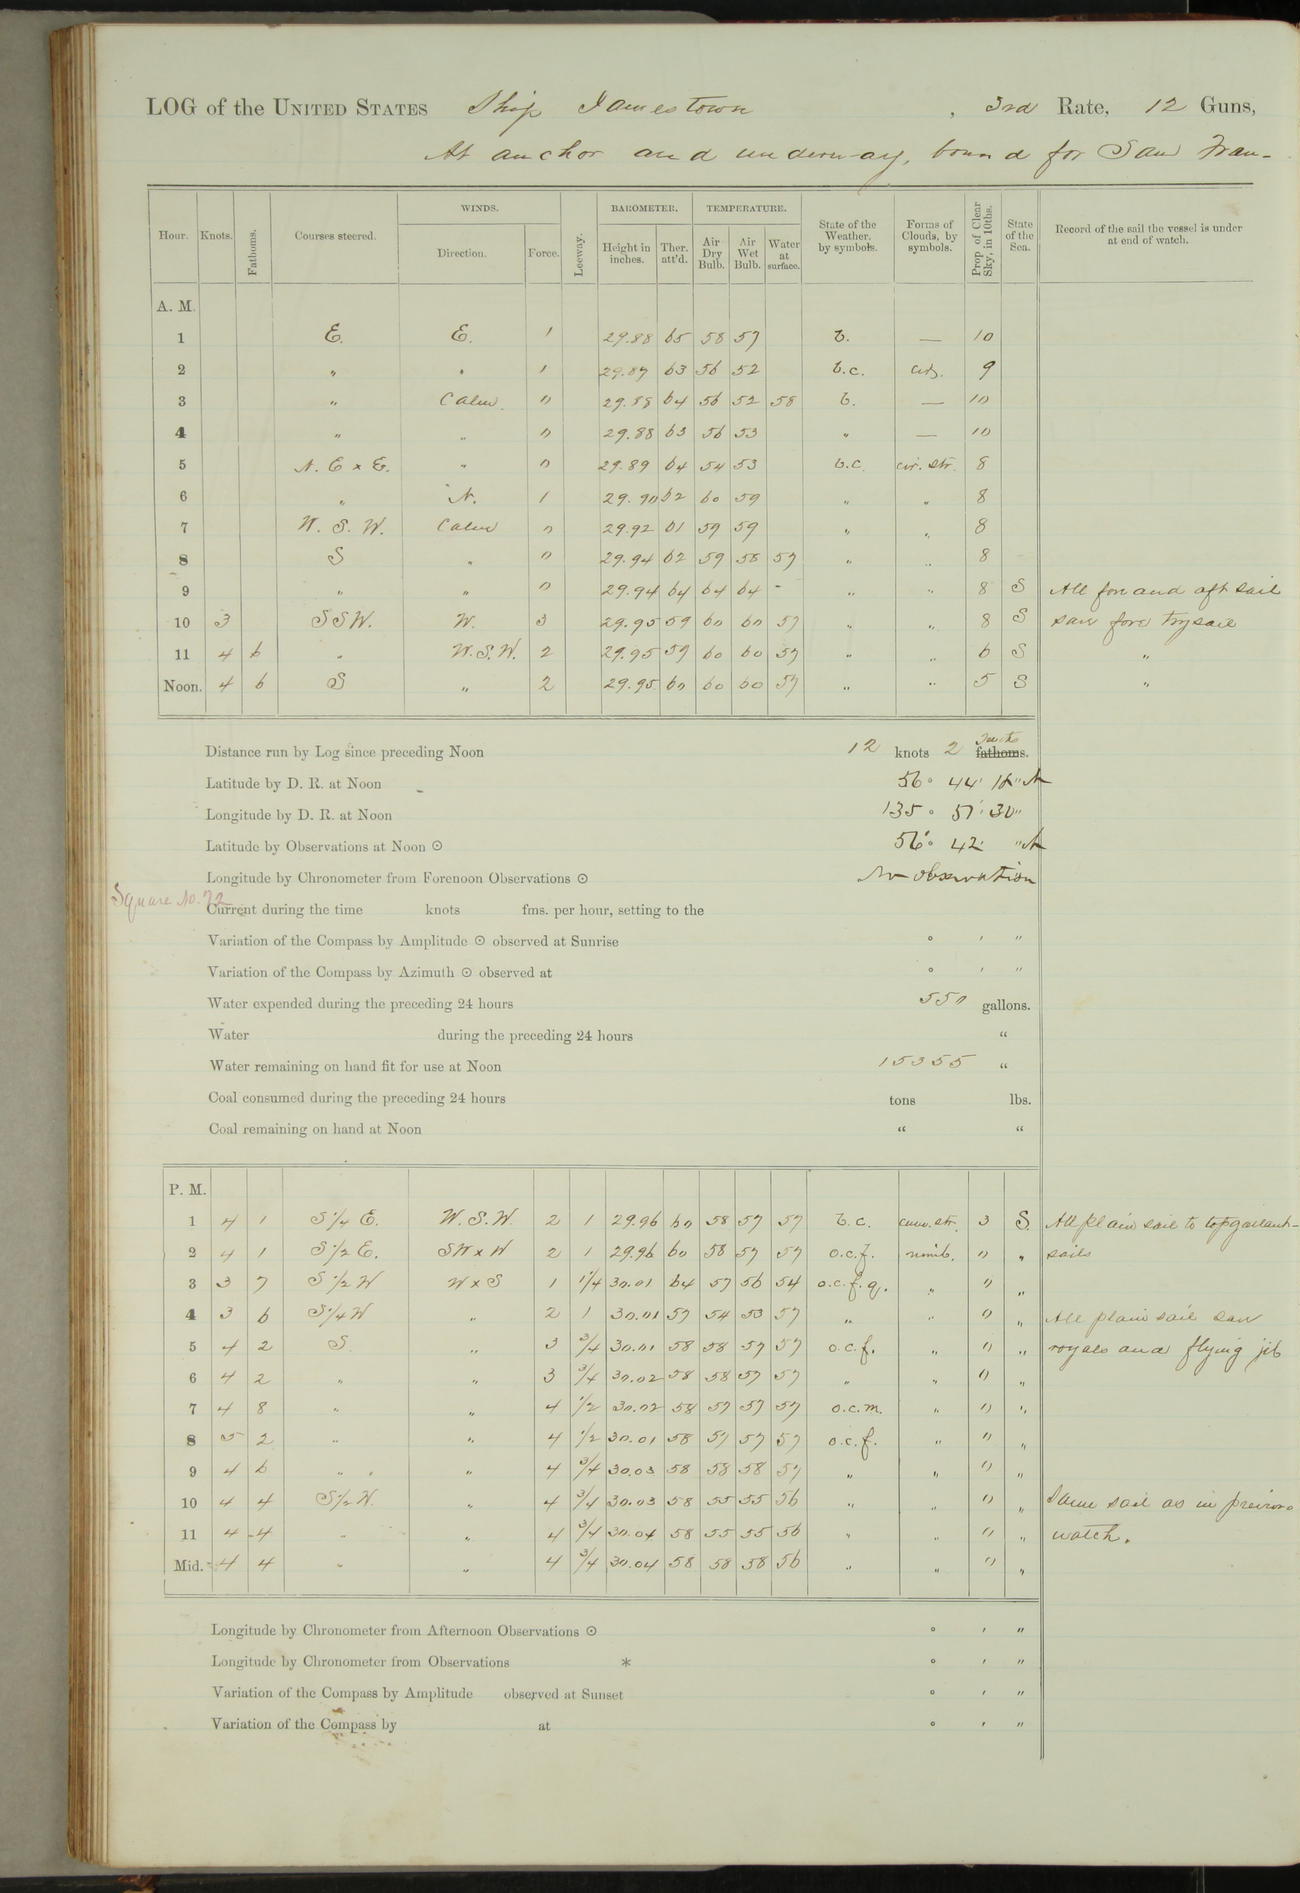 LOG of the UNITED STATES Ship Jamestown, 3rd Rate, 12 Guns,
At anchor and underway, bound for San Fran-
Hour. Knots. Fathoms. Courses steered. WINDS. Direction. Force. Leeway. BAROMETER. Height in inches. Ther. att'd. TEMPERATURE. Air Dry Bulb. Air Wet Bulb. Water at surface. State of the Weather. by symbols. Forms of Clouds, by symbols. Prop. of Clear Sky, in 10ths. State of the Sea. Record of the sail the vessel is under at end of watch.
A. M.
1 E. E. 1 29.88 65 58 57 b. — 10
2 " " 1 29.87 63 56 52 b.c. 9
3 " Calm 0 29.88 64 56 52 58 b. — 10
4 " " 0 29.88 63 56 53 " — 10
5 N. E x E. " 0 29.89 64 54 53 b.c. cir. str. 8
6 " N. 1 29.90 62 60 59 " " 8
7 W. S. W. Calm 0 29.92 61 59 59 " " 8
8 S " 0 29.94 62 59 58 57 " " 8
9 " " 0 29.94 64 64 64 - " " 8 S All fore and aft sail
10 3 SSW. W. 3 29.95 59 60 60 57 " " 8 S save fore trysail
11 4 6 " W.S.W. 2 29.95 59 60 60 57 " " 6 S "
Noon. 4 6 S " 2 29.95 60 60 60 57 " " 5 S "
Distance run by Log since preceding Noon 12 knots 2 tenths fathoms.
Latitude by D. R. at Noon 56° 44' 18" N
Longitude by D. R. at Noon 135° 51' 30"
Latitude by Observations at Noon ⊙ 56° 42' " N
Longitude by Chronometer from Forenoon Observations ⊙ No observation
Square No. 72
Current during the time knots fms. per hour, setting to the
Variation of the Compass by Amplitude ⊙ observed at Sunrise ° ' "
Variation of the Compass by Azimuth ⊙ observed at ° ' "
Water expended during the preceding 24 hours 550 gallons.
Water during the preceding 24 hours "
Water remaining on hand fit for use at Noon 15355 "
Coal consumed during the preceding 24 hours tons lbs.
Coal remaining on hand at Noon " "
P. M.
1 4 1 S 1/4 E. W. S. W. 2 1 29.96 60 58 57 57 b.c. cum. str. 3 S. All plain sail to topgallant-
2 4 1 S 1/2 E. SW x W 2 1 29.96 60 58 57 57 o.c.f. nimb. 0 " sails
3 3 7 S 1/2 W W x S 1 1 1/4 30.01 64 57 56 54 o.c.f.q. " 0 "
4 3 6 S 1/4 W " 2 1 30.01 57 54 53 57 " " 0 " All plain sail save
5 4 2 S. " 3 3/4 30.01 58 58 57 57 o.c.f. " 0 " royals and flying jib
6 4 2 " " 3 3/4 30.02 58 58 57 57 " " 0 "
7 4 8 " " 4 1/2 30.02 58 57 57 57 o.c.m. " 0 "
8 5 2 " " 4 1/2 30.01 58 57 57 57 o.c.f. " 0 "
9 4 6 " " 4 3/4 30.03 58 58 58 57 " " 0 "
10 4 4 S 1/2 W. " 4 3/4 30.03 58 55 55 56 " " 0 " Same sail as in previous
11 4 4 " " 4 3/4 30.04 58 55 55 56 " " 0 " watch.
Mid. 4 4 " " 4 3/4 30.04 58 58 58 56 " " 0 "
Longitude by Chronometer from Afternoon Observations ⊙ ° ' "
Longitude by Chronometer from Observations * ° ' "
Variation of the Compass by Amplitude observed at Sunset ° ' "
Variation of the Compass by at ° ' "